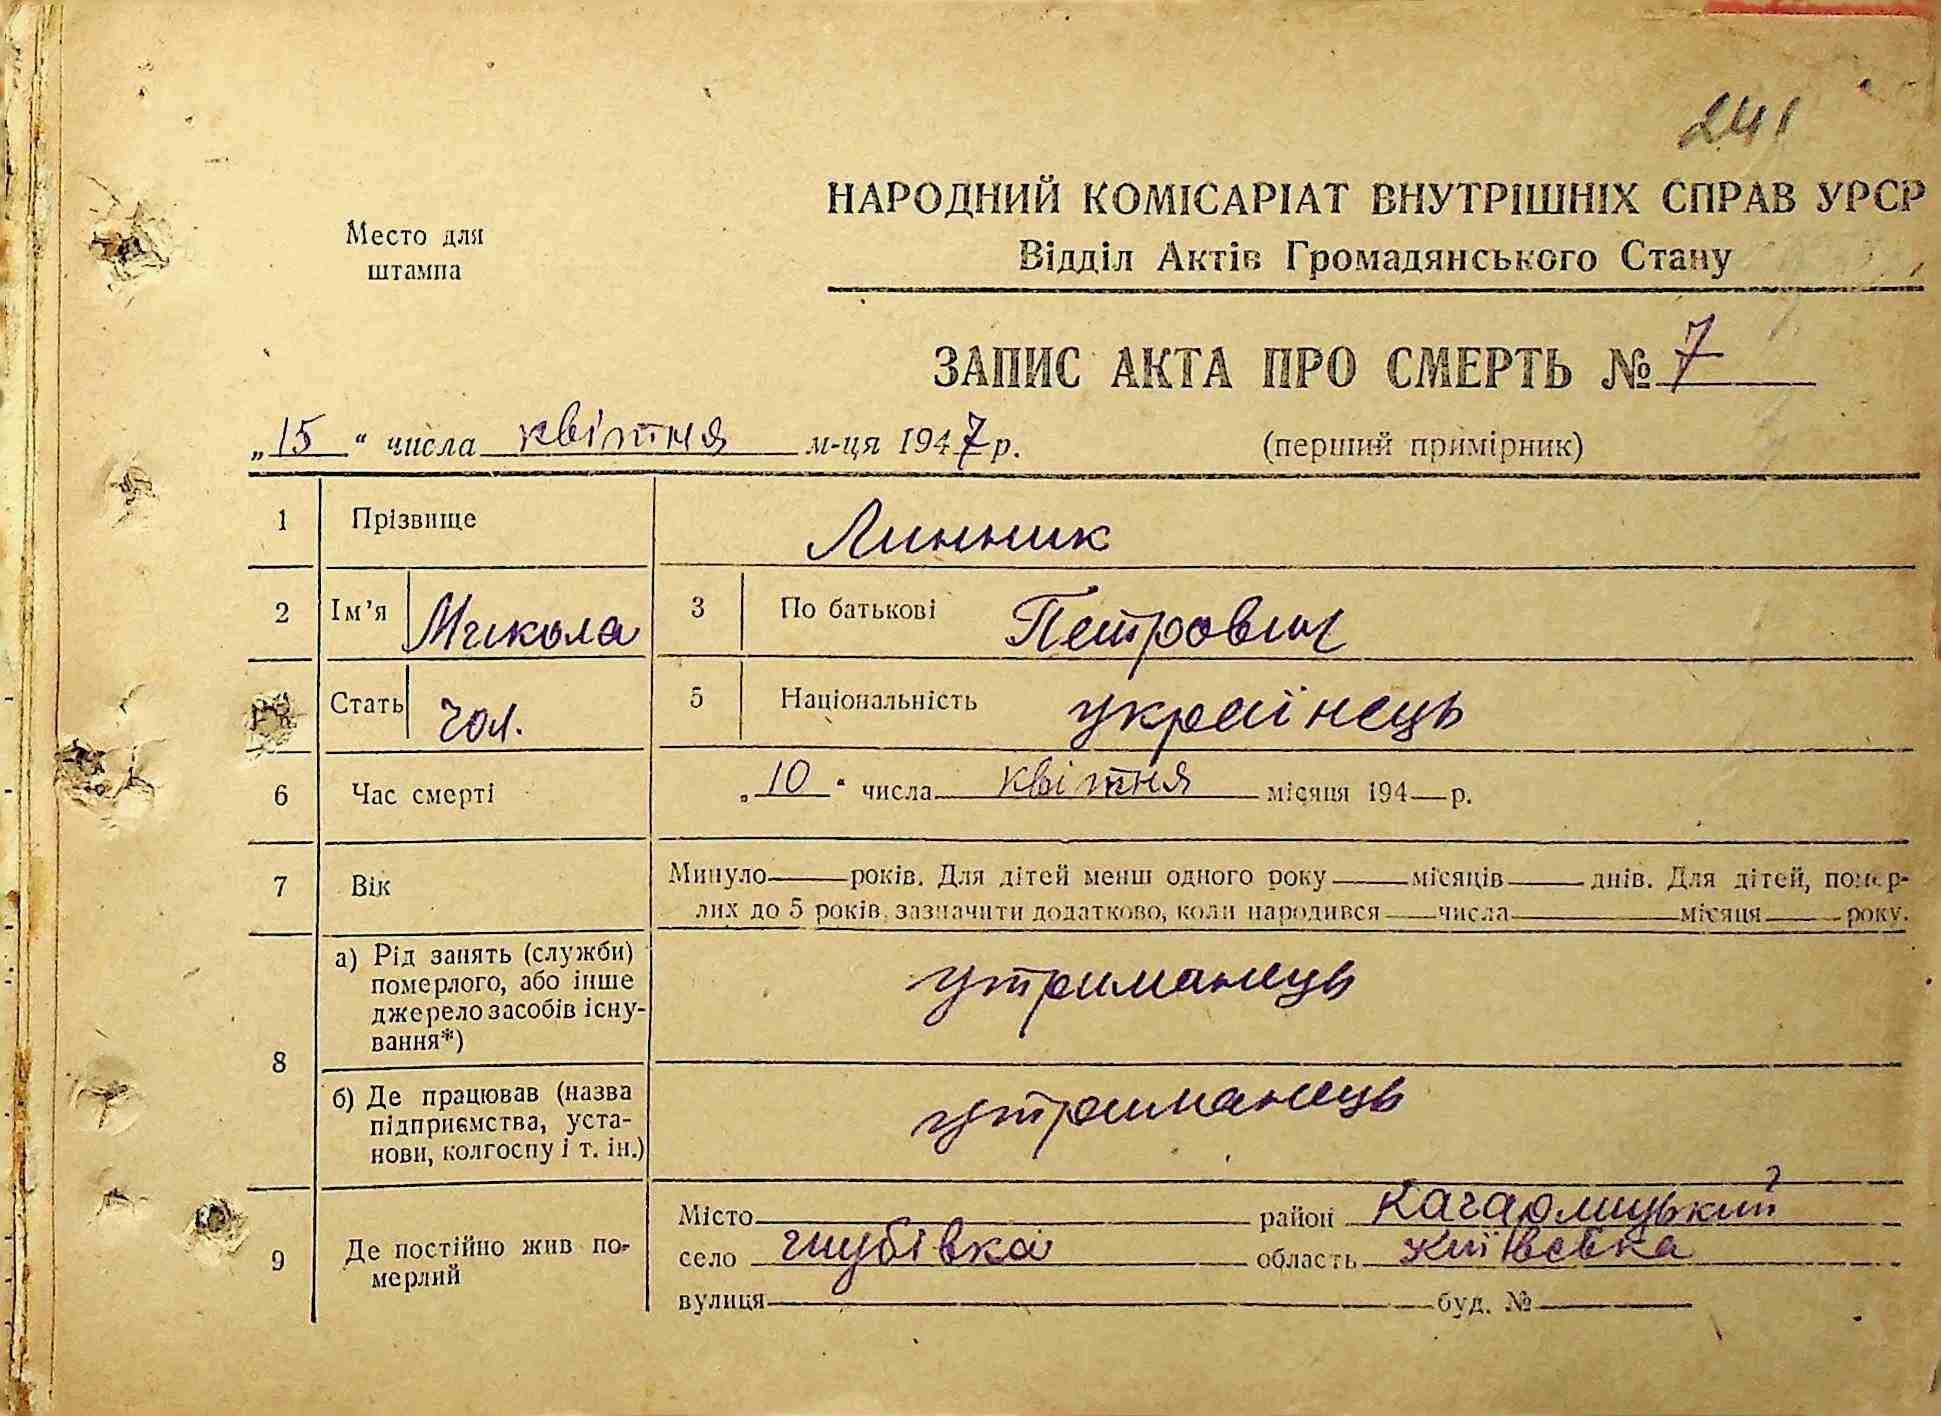 241
НАРОДНИЙ КОМІСАРІАТ ВНУТРІШНІХ СПРАВ УРСР
Место для
штампа
Відділ Актів Громадянського Стану
ЗАПИС АКТА ПРО СМЕРТЬ № 7
„15“ числа квітня м-ця 1947 р. (перший примірник)
1 Прізвище Линник
2 Ім'я Микола 3 По батькові Петрович
Стать чол. 5 Національність українець
6 Час смерті „10“ числа квітня місяця 194 р.
7 Вік Минуло років. Для дітей менш одного року місяців днів. Для дітей, помер-
лих до 5 років, зазначити додатково, коли народився числа місяця року.
8 а) Рід занять (служби)
померлого, або інше
джерело засобів існу-
вання*) утриманець
б) Де працював (назва
підприємства, уста-
нови, колгоспу і т. ін.) утриманець
9 Де постійно жив по-
мерлий
Місто район Кагарлицький
село область Київська
вулиця буд. №